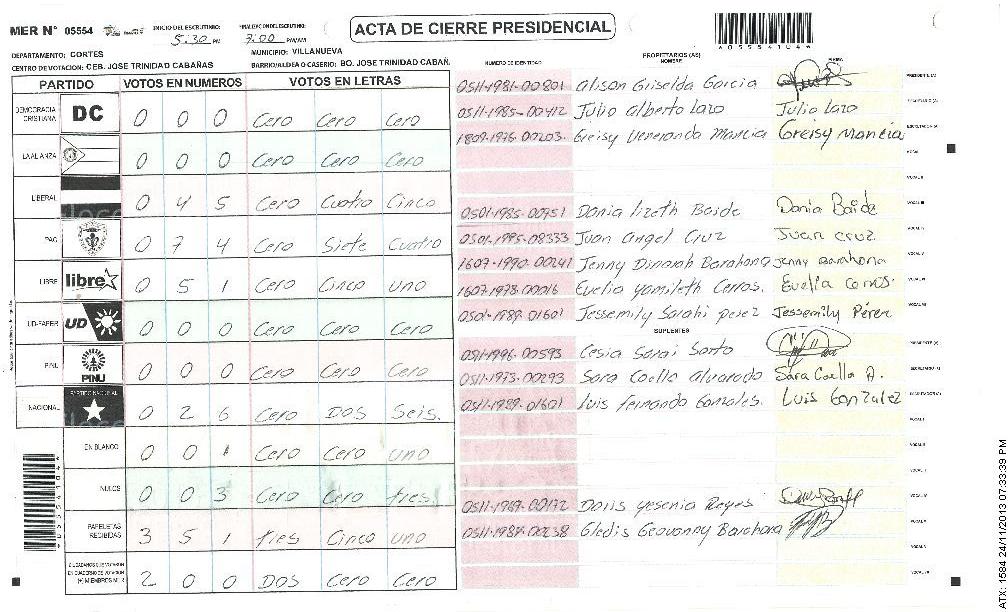 MER N° 05554 INICIO DEL ESCRUTINIO: 5:30 PM FINALIZACION DEL ESCRUTINIO: 7:00 PM/AM ACTA DE CIERRE PRESIDENCIAL
DEPARTAMENTO: CORTES MUNICIPIO: VILLANUEVA
CENTRO DE VOTACION: CEB. JOSE TRINIDAD CABAÑAS BARRIO/ALDEA O CASERIO: BO. JOSE TRINIDAD CABAÑ.
PARTIDO VOTOS EN NUMEROS VOTOS EN LETRAS
DEMOCRACIA CRISTIANA DC 0 0 0 Cero Cero Cero
LA ALIANZA 0 0 0 Cero Cero Cero
LIBERAL 0 4 5 Cero Cuatro Cinco
PAC 0 7 4 Cero Siete Cuatro
LIBRE libre 0 5 1 Cero Cinco uno
UD-FAPER UD 0 0 0 Cero Cero Cero
PINU PINU 0 0 0 Cero Cero Cero
NACIONAL PARTIDO NACIONAL 0 2 6 Cero DOS Seis.
EN BLANCO 0 0 1 Cero Cero uno
NULOS 0 0 3 Cero Cero tres
PAPELETAS RECIBIDAS 3 5 1 tres Cinco uno
CIUDADANOS QUE VOTARON EN CUADERNO DE VOTACION (+) MIEMBROS MER 2 0 0 DOS Cero Cero
NUMERO DE IDENTIDAD PROPIETARIOS (AS) NOMBRE FIRMA
0511-1981-00801 Alison Griselda Garcia PRESIDENTE (A)
0511-1985-00412 Julio Alberto Lazo Julio Lazo SECRETARIO (A)
1809-1976-00203. Greisy Veneranda Mancia Greisy Mancia ESCRUTADOR (A)
VOCAL I
VOCAL II
0501-1985-00751 Dania lizeth Baide Dania Baide VOCAL III
0501-1995-08333 Juan Angel Cruz Juan Cruz VOCAL IV
1607-1990-00241 Jenny Dinorah Barahona Jenny Barahona VOCAL V
1607-1978-00016 Evelia Yamileth Cerros. Evelia VOCAL VI
0501-1989-01601 Jessemily Sarahi perez Jessemily Pérez VOCAL VII
SUPLENTES
0511-1996-00593 Cesia Sarai Sorto PRESIDENTE (A)
0511-1973-00293 Sara Coello Alvarado Sara Coello A. SECRETARIO (A)
0511-1989-01601 Luis Fernando Gonzales. Luis Gonzalez ESCRUTADOR (A)
VOCAL I
VOCAL II
VOCAL III
0511-1989-00172 Doris Yesenia Reyes VOCAL IV
0511-1987-00238 Gledis Geovanny Barahona VOCAL V
VOCAL VI
VOCAL VII
*05554104*
*05554104*
ATX: 1584 24/11/2013 07:33:39 PM